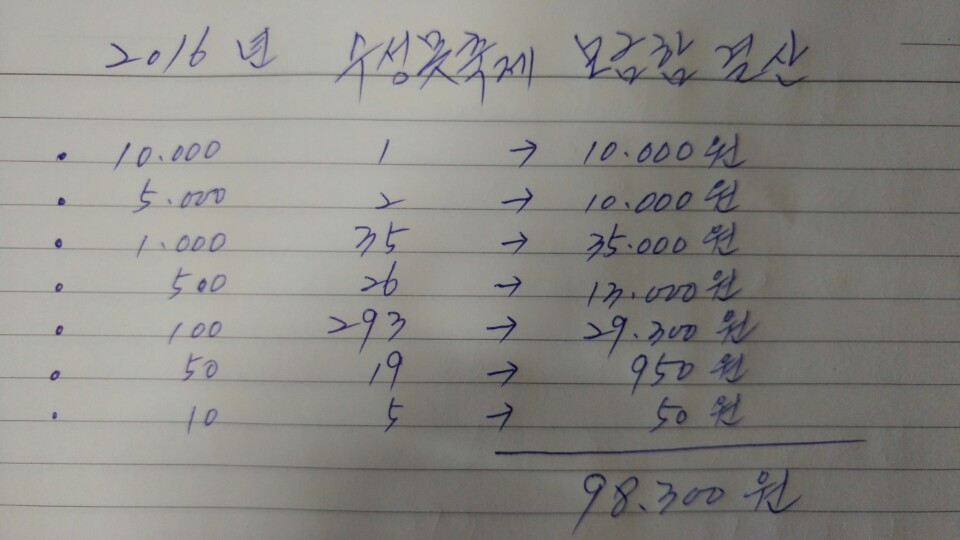 2016년 수성못축제 모금함 결산
· 10.000 1 → 10.000원
· 5.000 2 → 10.000원
· 1.000 35 → 35.000원
· 500 26 → 13.000원
· 100 293 → 29.300원
· 50 19 → 950원
· 10 5 → 50원
98.300원